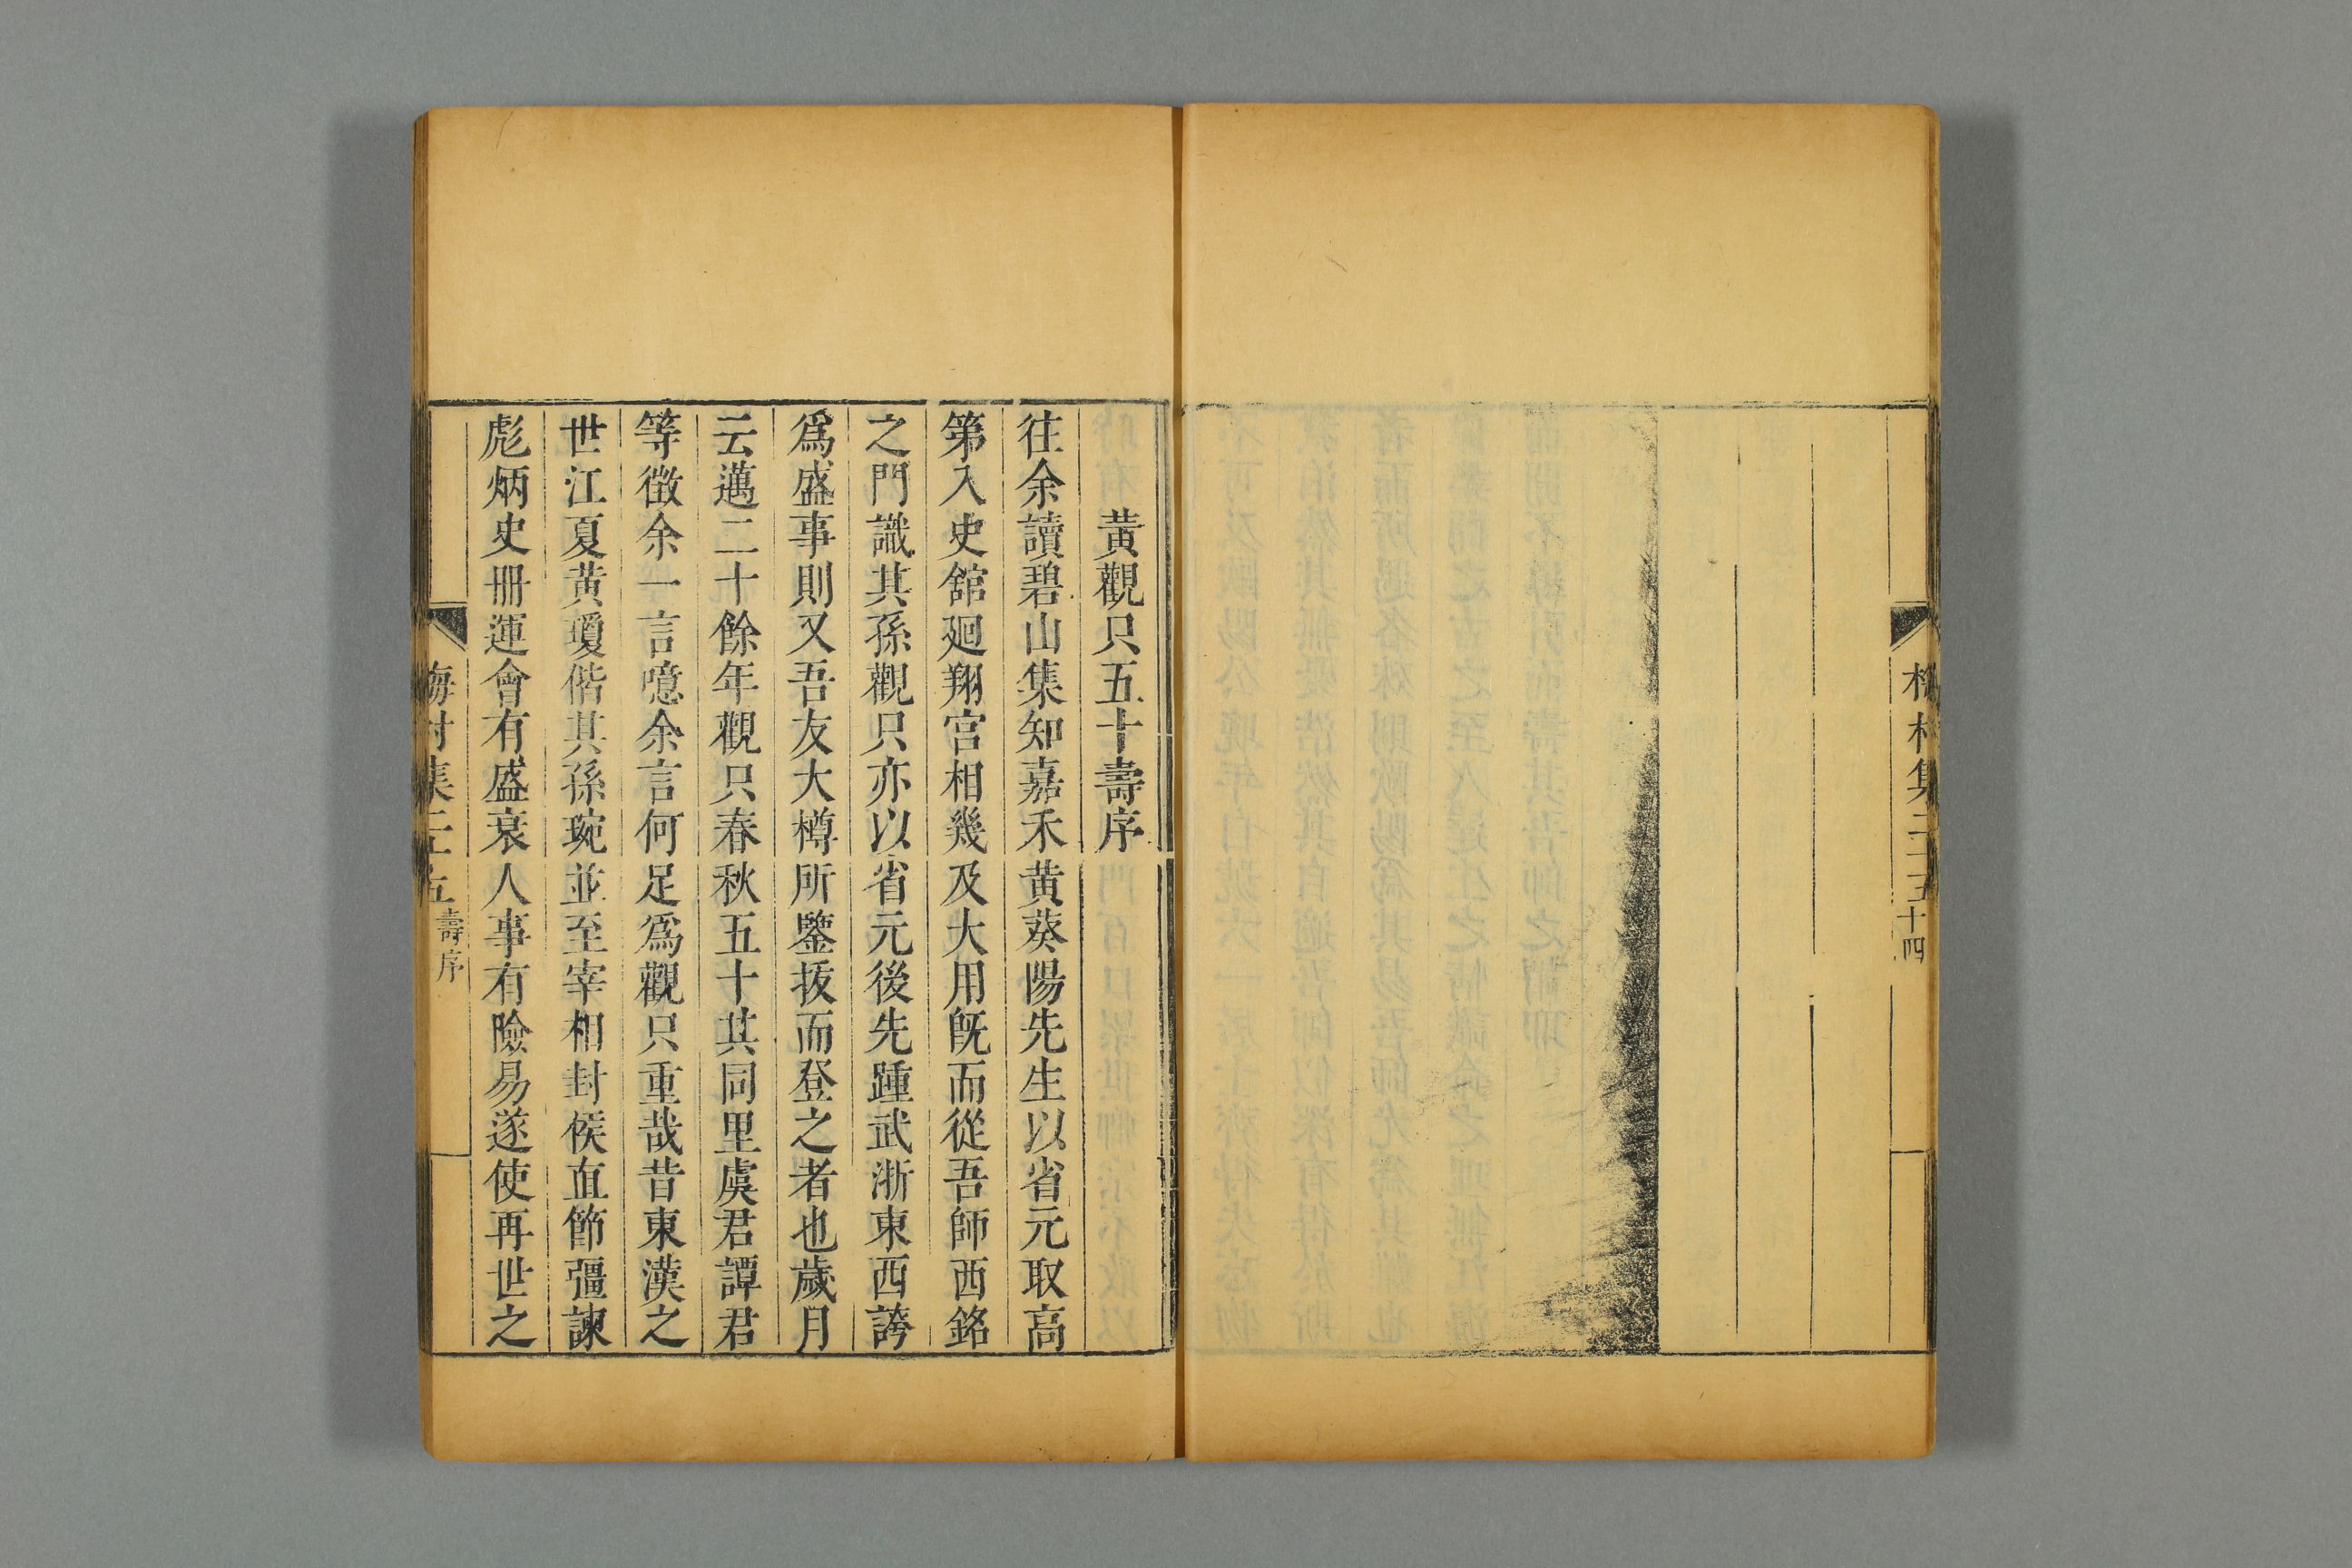 十四
黄觀只五十壽序
往余讀碧山集知嘉禾黄葵陽先生以省元取高
第入史舘廻翔宫相幾及大用旣而從吾師西銘
之門識其孫觀只亦以省元後先踵武浙東西誇
爲盛事則又吾友大樽所鑒拔而登之者也歲月
云邁二十餘年觀只春秋五十其同里虞君譚君
等徴余一言噫余言何足爲觀只重哉昔東漢之
世江夏黄瓊偕其孫琬並至宰相封侯直節彊諫
彪炳史冊運會有盛衰人事有險易遂使再世之
壽序